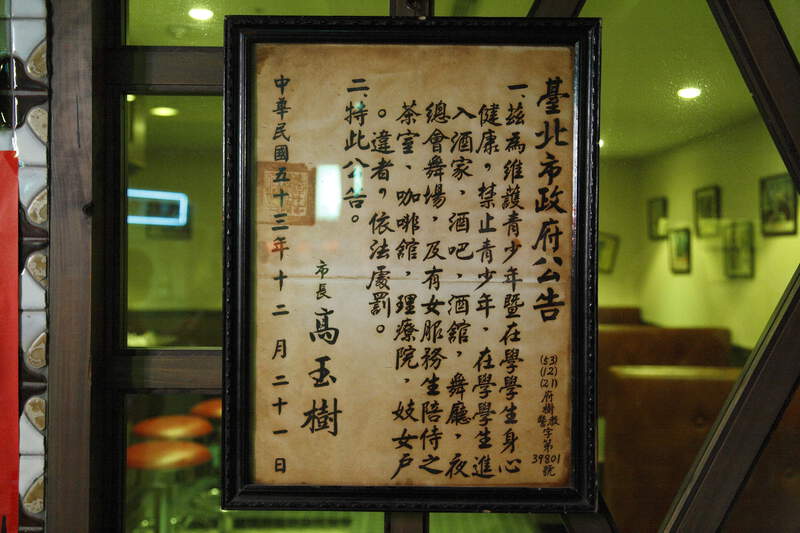 臺北市政府公告
(53)
(12)
(21)
府樹教
警字第
39801
號
一、茲為維護青少年暨在學學生身心
健康，禁止青少年，在學學生進
入酒家，酒吧，酒館，舞廳，夜
總會舞場，及有女服務生陪侍之
茶室、咖啡館，理療院，妓女戶
。違者，依法處罰。
二、特此公告。
市長 高玉樹
中華民國五十三年十二月二十一日